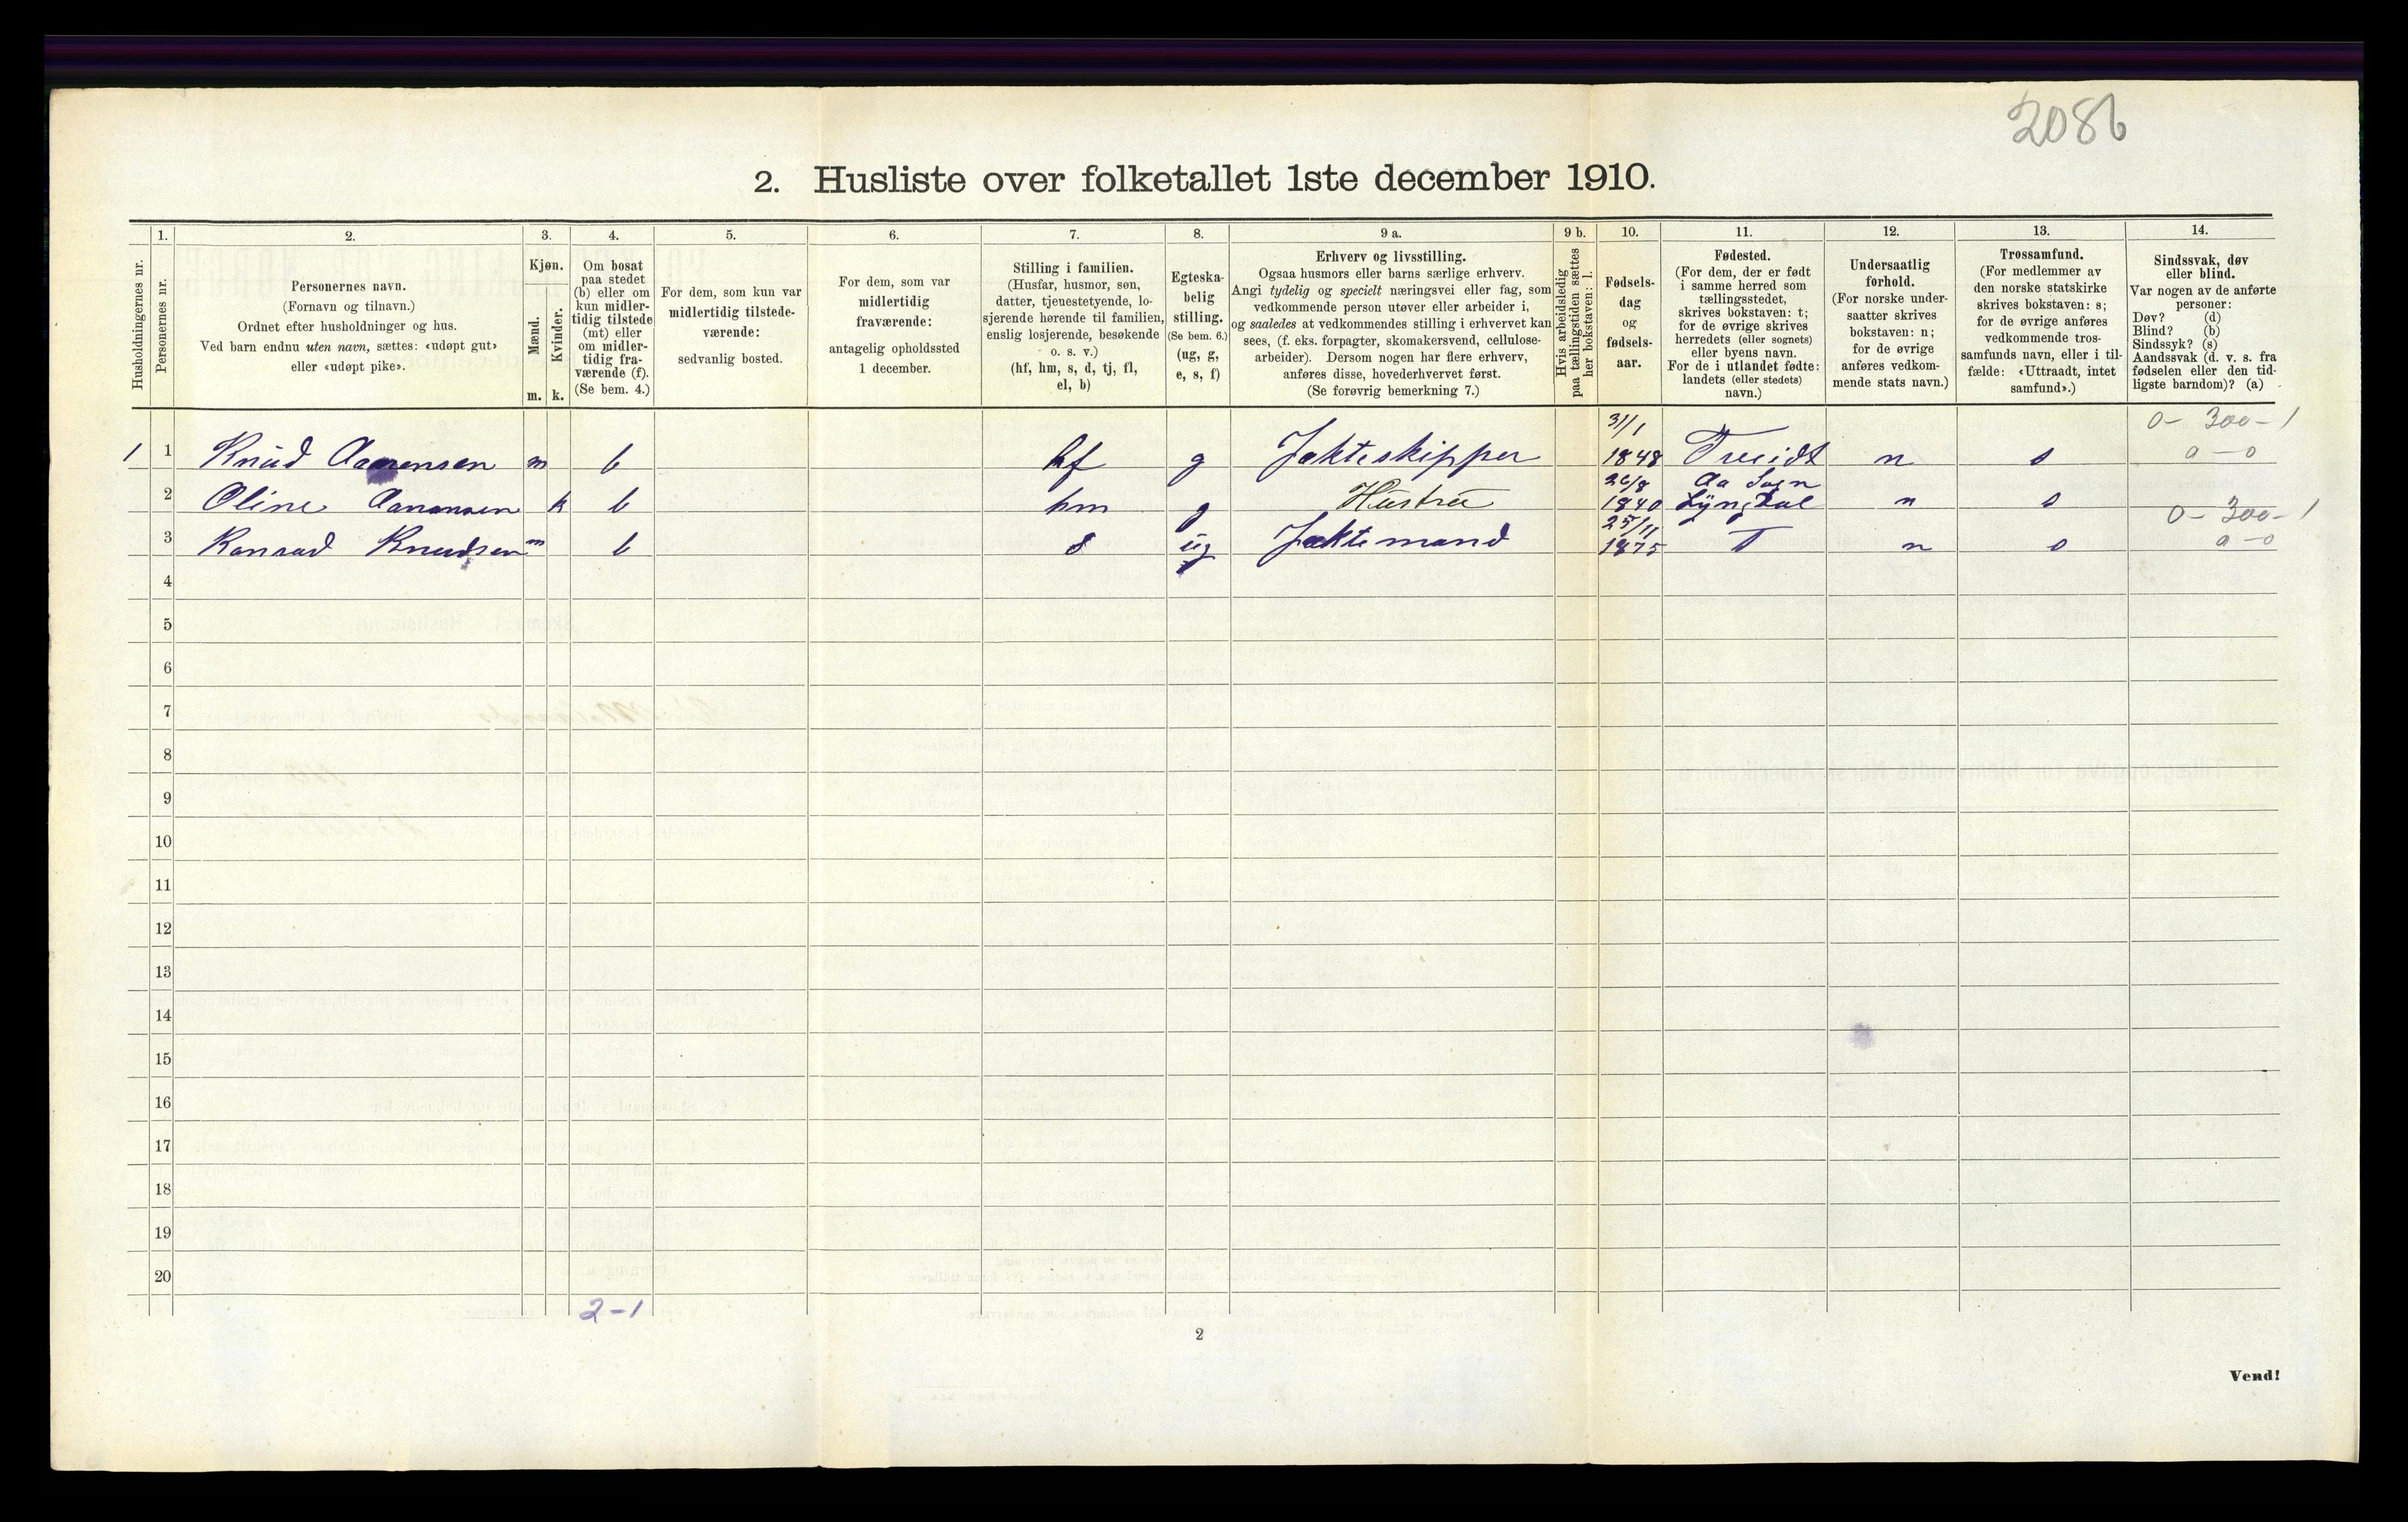 2086
2. Husliste over folketallet 1ste december 1910.
Husholdningernes nr.
1.
Personernes nr.
2.
Personernes navn.
(Fornavn og tilnavn.)
Ordnet efter husholdninger og hus.
Ved barn endnu uten navn, sættes: «udøpt gut»
eller «udøpt pike».
3.
Kjøn.
Mænd.
Kvinder.
m. k.
4.
Om bosat
paa stedet
(b) eller om
kun midler-
tidig tilstede
(mt) eller
om midler-
tidig fra-
værende (f).
(Se bem. 4.)
5.
For dem, som kun var
midlertidig tilstede-
værende:
sedvanlig bosted.
6.
For dem, som var
midlertidig
fraværende:
antagelig opholdssted
1 december.
7.
Stilling i familien.
(Husfar, husmor, søn,
datter, tjenestetyende, lo-
sjerende hørende til familien,
enslig losjerende, besøkende
o. s. v.)
(hf, hm, s, d, tj, fl,
el, b)
8.
Egteska-
belig
stilling.
(Se bem. 6.)
(ug, g,
e, s, f)
9 a.
Erhverv og livsstilling.
Ogsaa husmors eller barns særlige erhverv.
Angi tydelig og specielt næringsvei eller fag, som
vedkommende person utøver eller arbeider i,
og saaledes at vedkommendes stilling i erhvervet kan
sees, (f. eks. forpagter, skomakersvend, cellulose-
arbeider). Dersom nogen har flere erhverv,
anføres disse, hovederhvervet først.
(Se forøvrig bemerkning 7.)
9 b.
Hvis arbeidsledig
paa tællingstiden sættes
her bokstaven: l.
10.
Fødsels-
dag
og
fødsels-
aar.
11.
Fødested.
(For dem, der er født
i samme herred som
tællingsstedet,
skrives bokstaven: t;
for de øvrige skrives
herredets (eller sognets)
eller byens navn.
For de i utlandet fødte:
landets (eller stedets)
navn.)
12.
Undersaatlig
forhold.
(For norske under-
saatter skrives
bokstaven: n;
for de øvrige
anføres vedkom-
mende stats navn.)
13.
Trossamfund.
(For medlemmer av
den norske statskirke
skrives bokstaven: s;
for de øvrige anføres
vedkommende tros-
samfunds navn, eller i til-
fælde: «Uttraadt, intet
samfund».)
14.
Sindssvak, døv
eller blind.
Var nogen av de anførte
personer:
Døv? (d)
Blind? (b)
Sindssyk? (s)
Aandssvak (d. v. s. fra
fødselen eller den tid-
ligste barndom)? (a)
31/1 0 - 300 - 1
1 1 Knud Aanensen m b hf g Jakteskipper 1848 Tveidt n s 0 - 0
26/8 Aa Sogn
2 Oline Aanensen k b hm g Hustru 1840 Lyngdal n s
25/11 0 - 300 - 1
3 Konrad Knudsen m b s ug Jaktemand 1875 T n s 0 - 0
4
5
6
7
8
9
10
11
12
13
14
15
16
17
18
19
20
2-1
2
Vend!